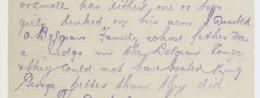 or small has either one or two
girls linked on his arm. I visited
a Belgian Family whose father was
a Judge in the Belgian Congo
& they could not have treated King
George better than they did